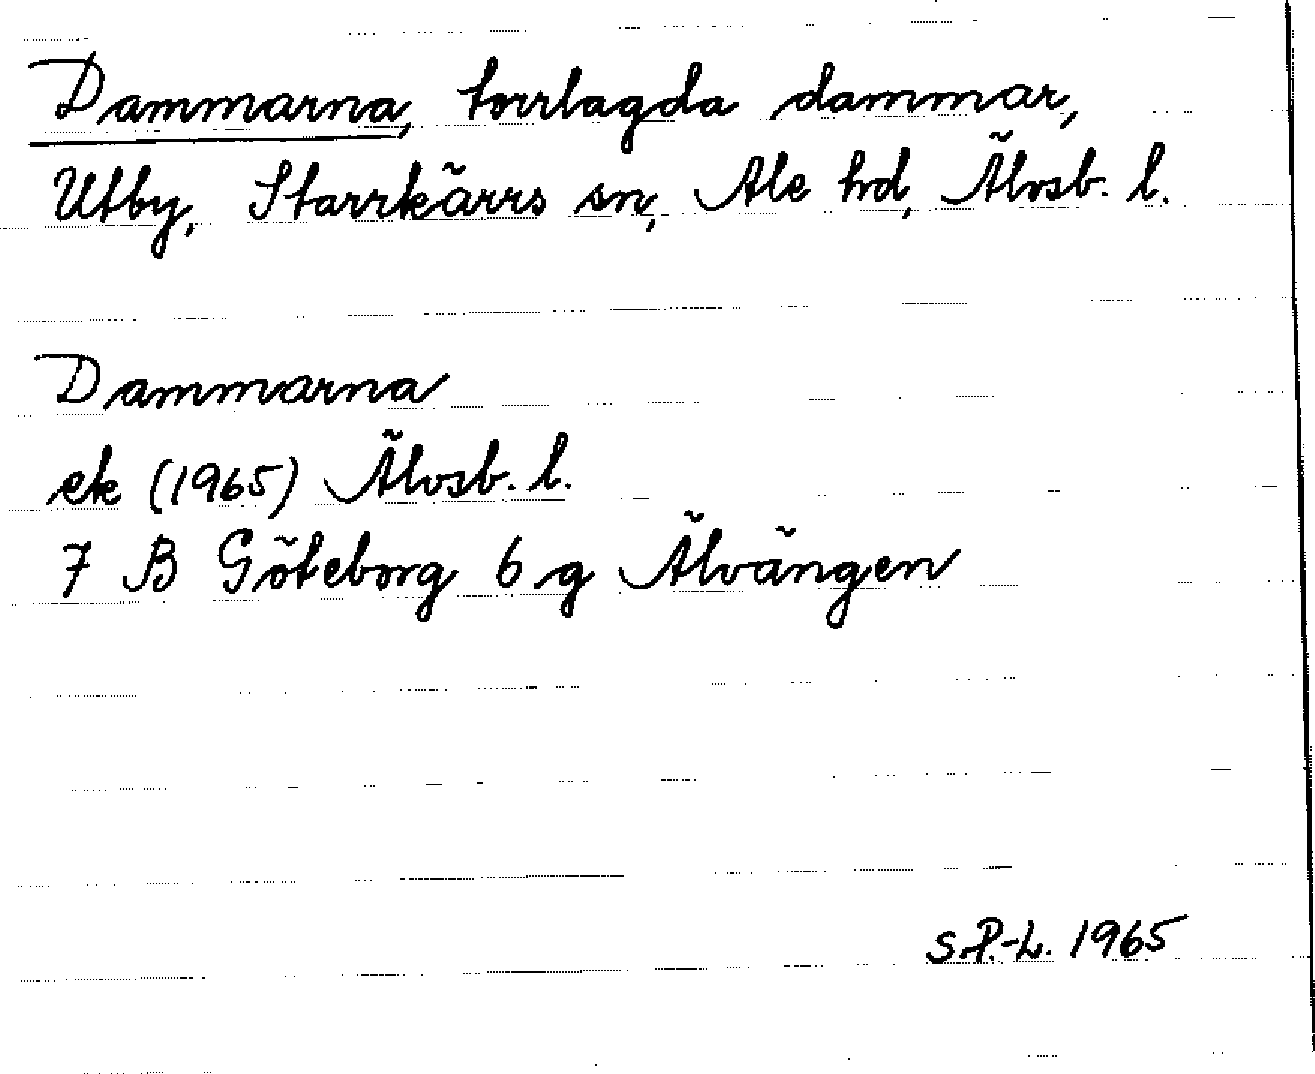 Dammarna, torrlagda dammar,
Utby, Starrkärrs sn, Ale hd, Älvsb. l.
Dammarna
ek (1965) Älvsb. l.
7 B Göteborg 6 g Älvängen
S.P.-L. 1965